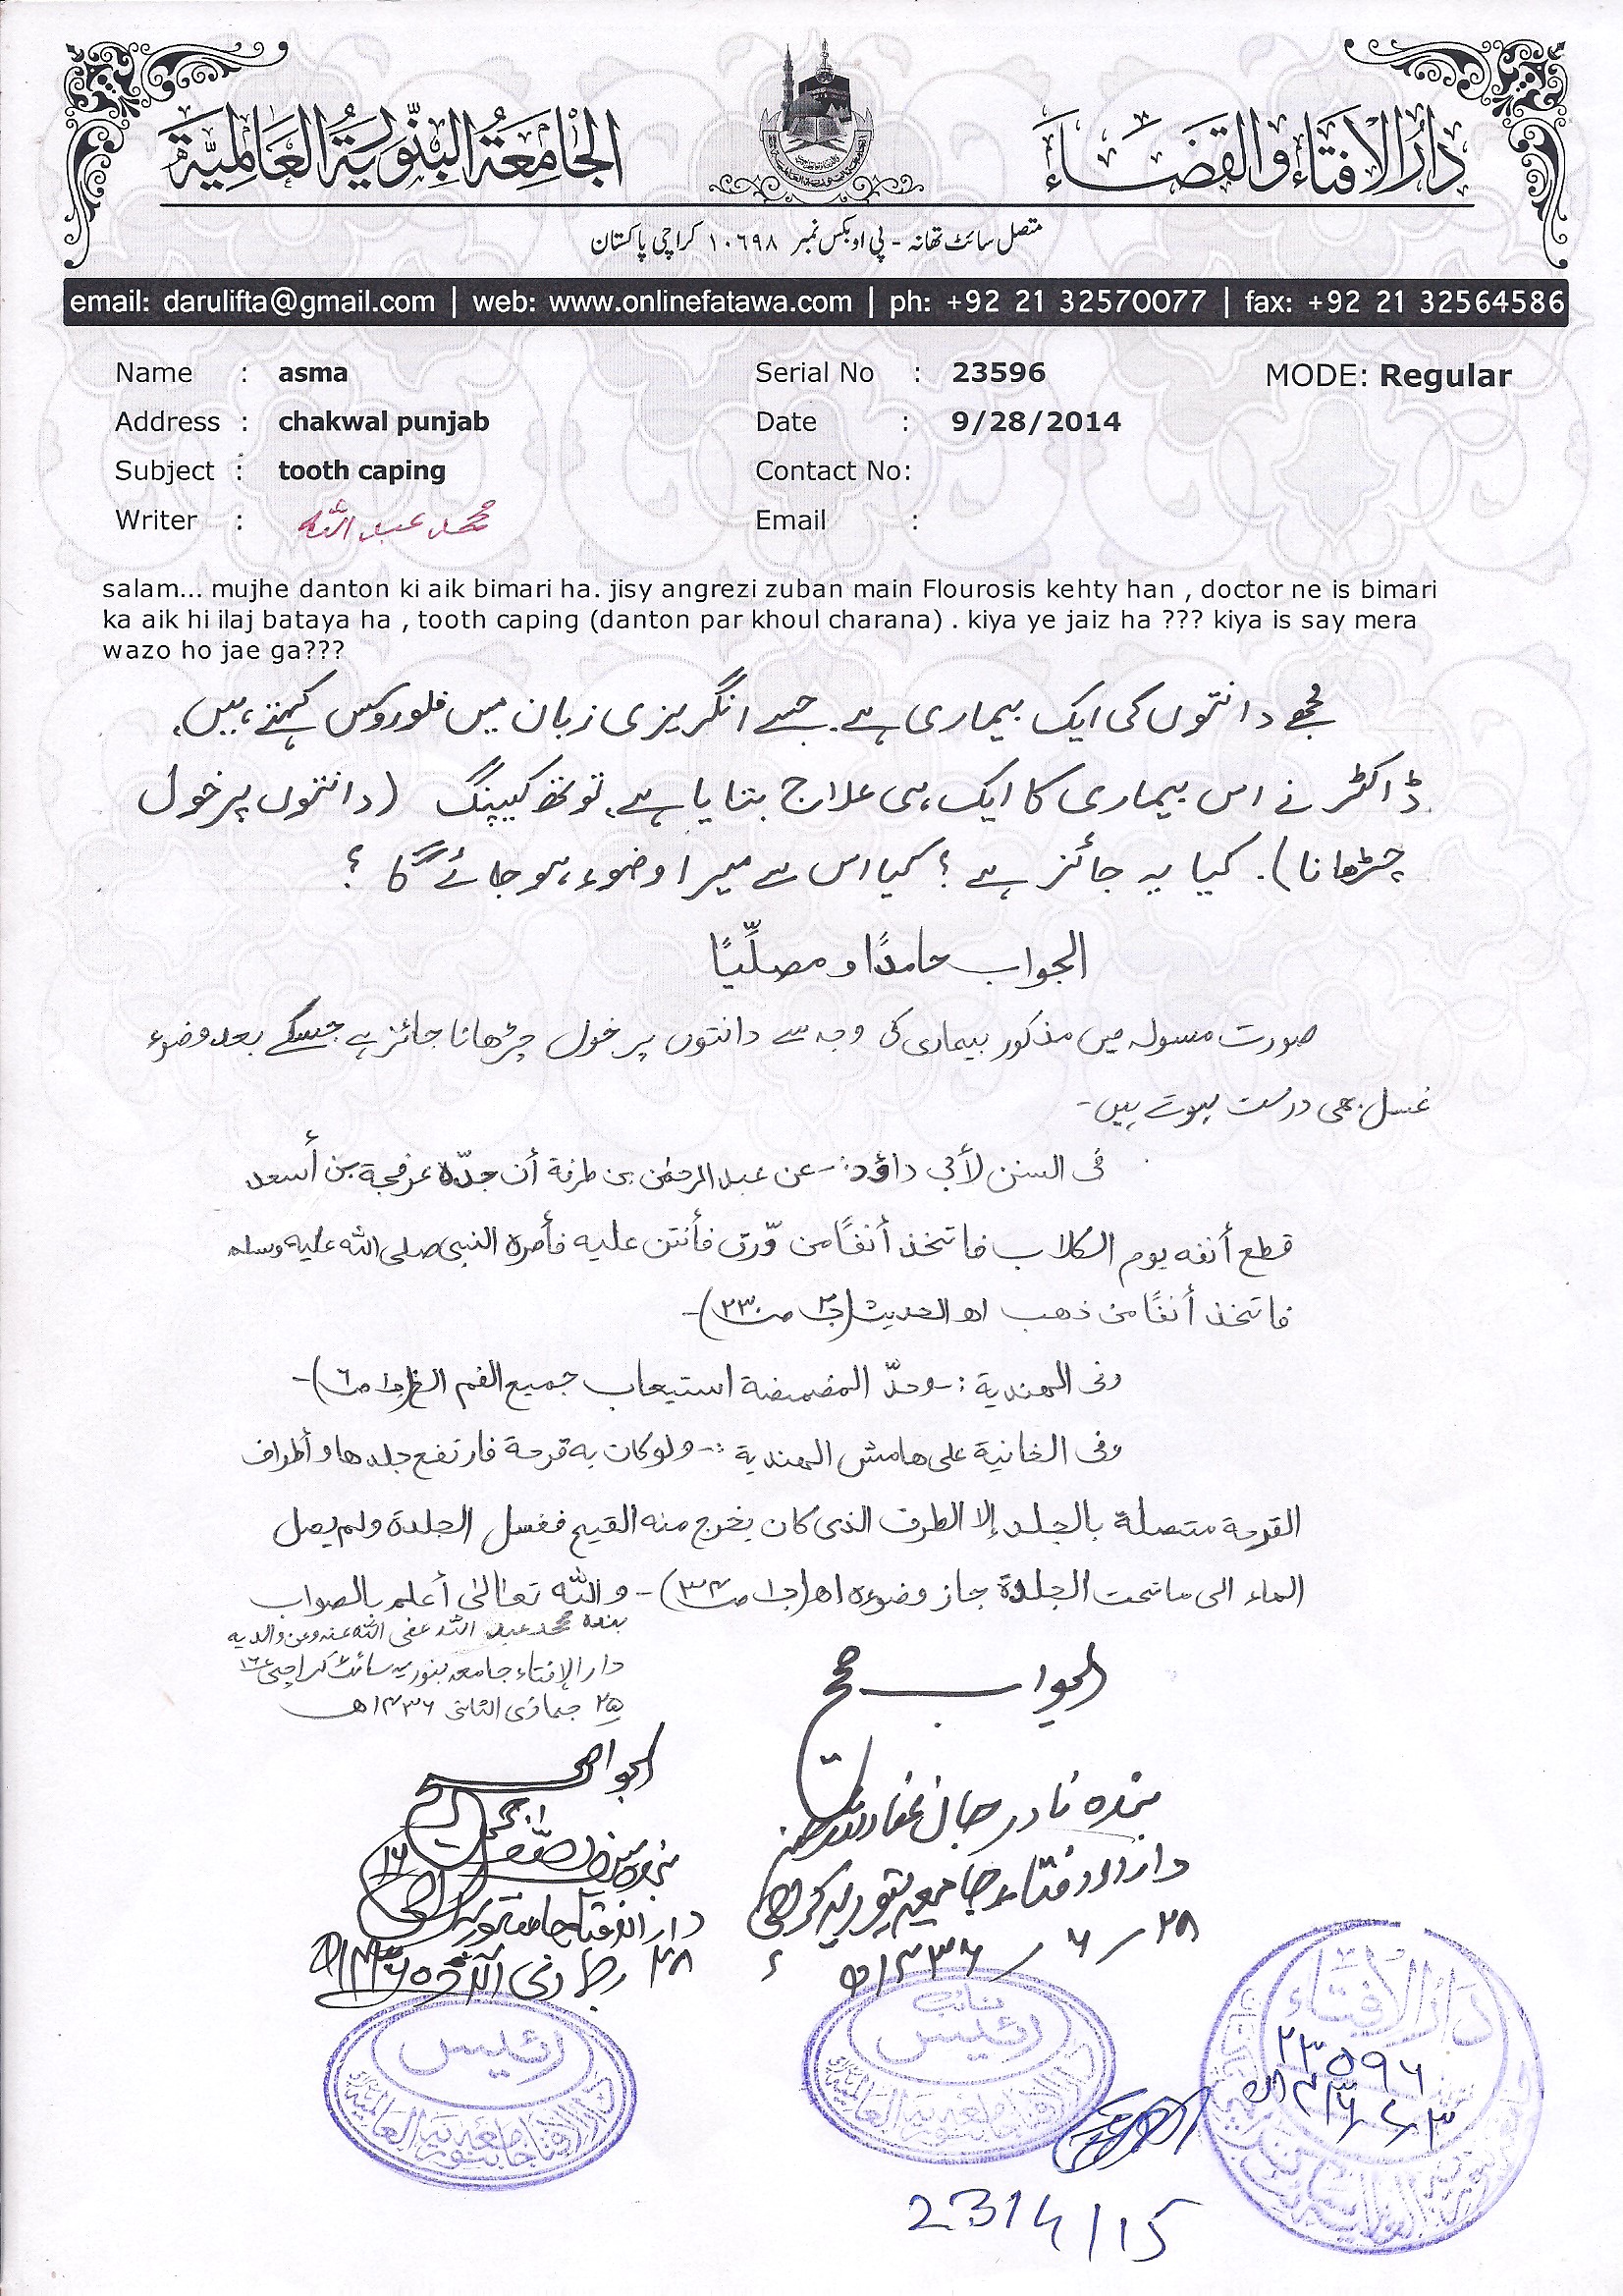 دَارُ الْاِفْتَاء وَالْقَضَاء
الْجَامِعَةُ الْبِنُّوْرِيَّةُ الْعَالَمِيَّة
متصل سائٹ تھانہ - پی او بکس نمبر ۱۰۶۹۸ کراچی پاکستان
email: darulifta@gmail.com | web: www.onlinefatawa.com | ph: +92 21 32570077 | fax: +92 21 32564586
Name : asma Serial No : 23596 MODE: Regular
Address : chakwal punjab Date : 9/28/2014
Subject : tooth caping Contact No:
Writer : محمد عبد اللہ Email :
salam... mujhe danton ki aik bimari ha. jisy angrezi zuban main Flourosis kehty han , doctor ne is bimari
ka aik hi ilaj bataya ha , tooth caping (danton par khoul charana) . kiya ye jaiz ha ??? kiya is say mera
wazo ho jae ga???
مجھے دانتوں کی ایک بیماری ہے۔ جسے انگریزی زبان میں فلوروکس کہتے ہیں۔
ڈاکٹر نے اس بیماری کا ایک ہی علاج بتایا ہے۔ توتھ کیپنگ (دانتوں پر خول
چڑھانا)۔ کیا یہ جائز ہے ؟ کیا اس سے میرا وضوء ہو جائے گا ؟
الجواب حامدًا و مصلِّیًا
صورت مسولہ میں مذکور بیماری کی وجہ سے دانتوں پر خول چڑھانا جائز ہے جسکے بعد وضوء
غسل بھی درست ہوتے ہیں۔
فی السنن لأبی داؤد:- عن عبد الرحمٰن بن طرفة أن جدّہ عرفجة بن أسعد
قطع أنفه يوم الكلاب فاتخذ أنفًا من وّرق فأنتن عليه فأمره النبی صلی اللہ علیہ وسلم
فاتخذ أنفًا من ذهب اھ الحدیث (ج۲ ص۲۳۰)-
وفی الهندیة :- وحدّ المضمضة استیعاب جمیع الفم الخ (ج۱ ص۶)-
وفی الخانیة علی هامش الهندیة :- ولو کان به قرحة فارتفع جلدها و أطراف
القرحة متصلة بالجلد إلا الطرف الذی کان یخرج منه القیح فغسل الجلدة ولم یصل
الماء الی ما تحت الجلدة جاز وضوءه اھ (ج۱ ص۳۴)- واللہ تعالیٰ أعلم بالصواب
بندہ محمد عبد اللہ عفی اللہ عنہ وعن والدیہ
دار الإفتاء جامعہ بنوریہ سائٹ کراچی ۱۶
۲۵ جمادی الثانی ۱۴۳۶ھ
الجواب صحیح
بندہ نادر جان
دار الافتاء جامعہ بنوریہ کراچی
۲۸ / ۶ / ۱۴۳۶ھ
الجواب صحیح
دار الافتاء جامعہ بنوریہ
۲۸
رئیس
دار الافتاء جامعہ بنوریہ العالمیہ
نائب
رئیس
دار الافتاء جامعہ بنوریہ العالمیہ
دَارُ الْاِفْتَاء
۲۳۵۹۶
23/4/15